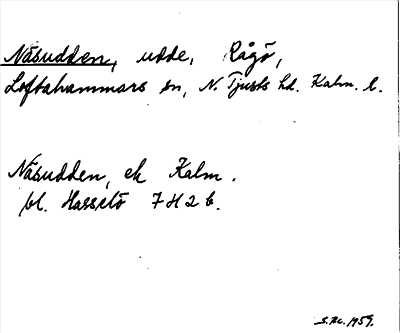 Näsudden, udde, Rågö,
Loftahammars sn, N. Tjusts hd. Kalm. l.
Näsudden, ek Kalm.
bl. Hasselö 7H2b.
S.Ae. 1959.